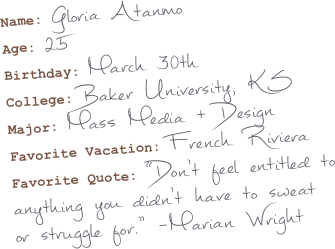 Name: Gloria Atanmo
Age: 25
Birthday: March 30th
College: Baker University, KS
Major: Mass Media + Design
Favorite Vacation: French Riviera
Favorite Quote: "Don't feel entitled to
anything you didn't have to sweat
or struggle for." -Marian Wright